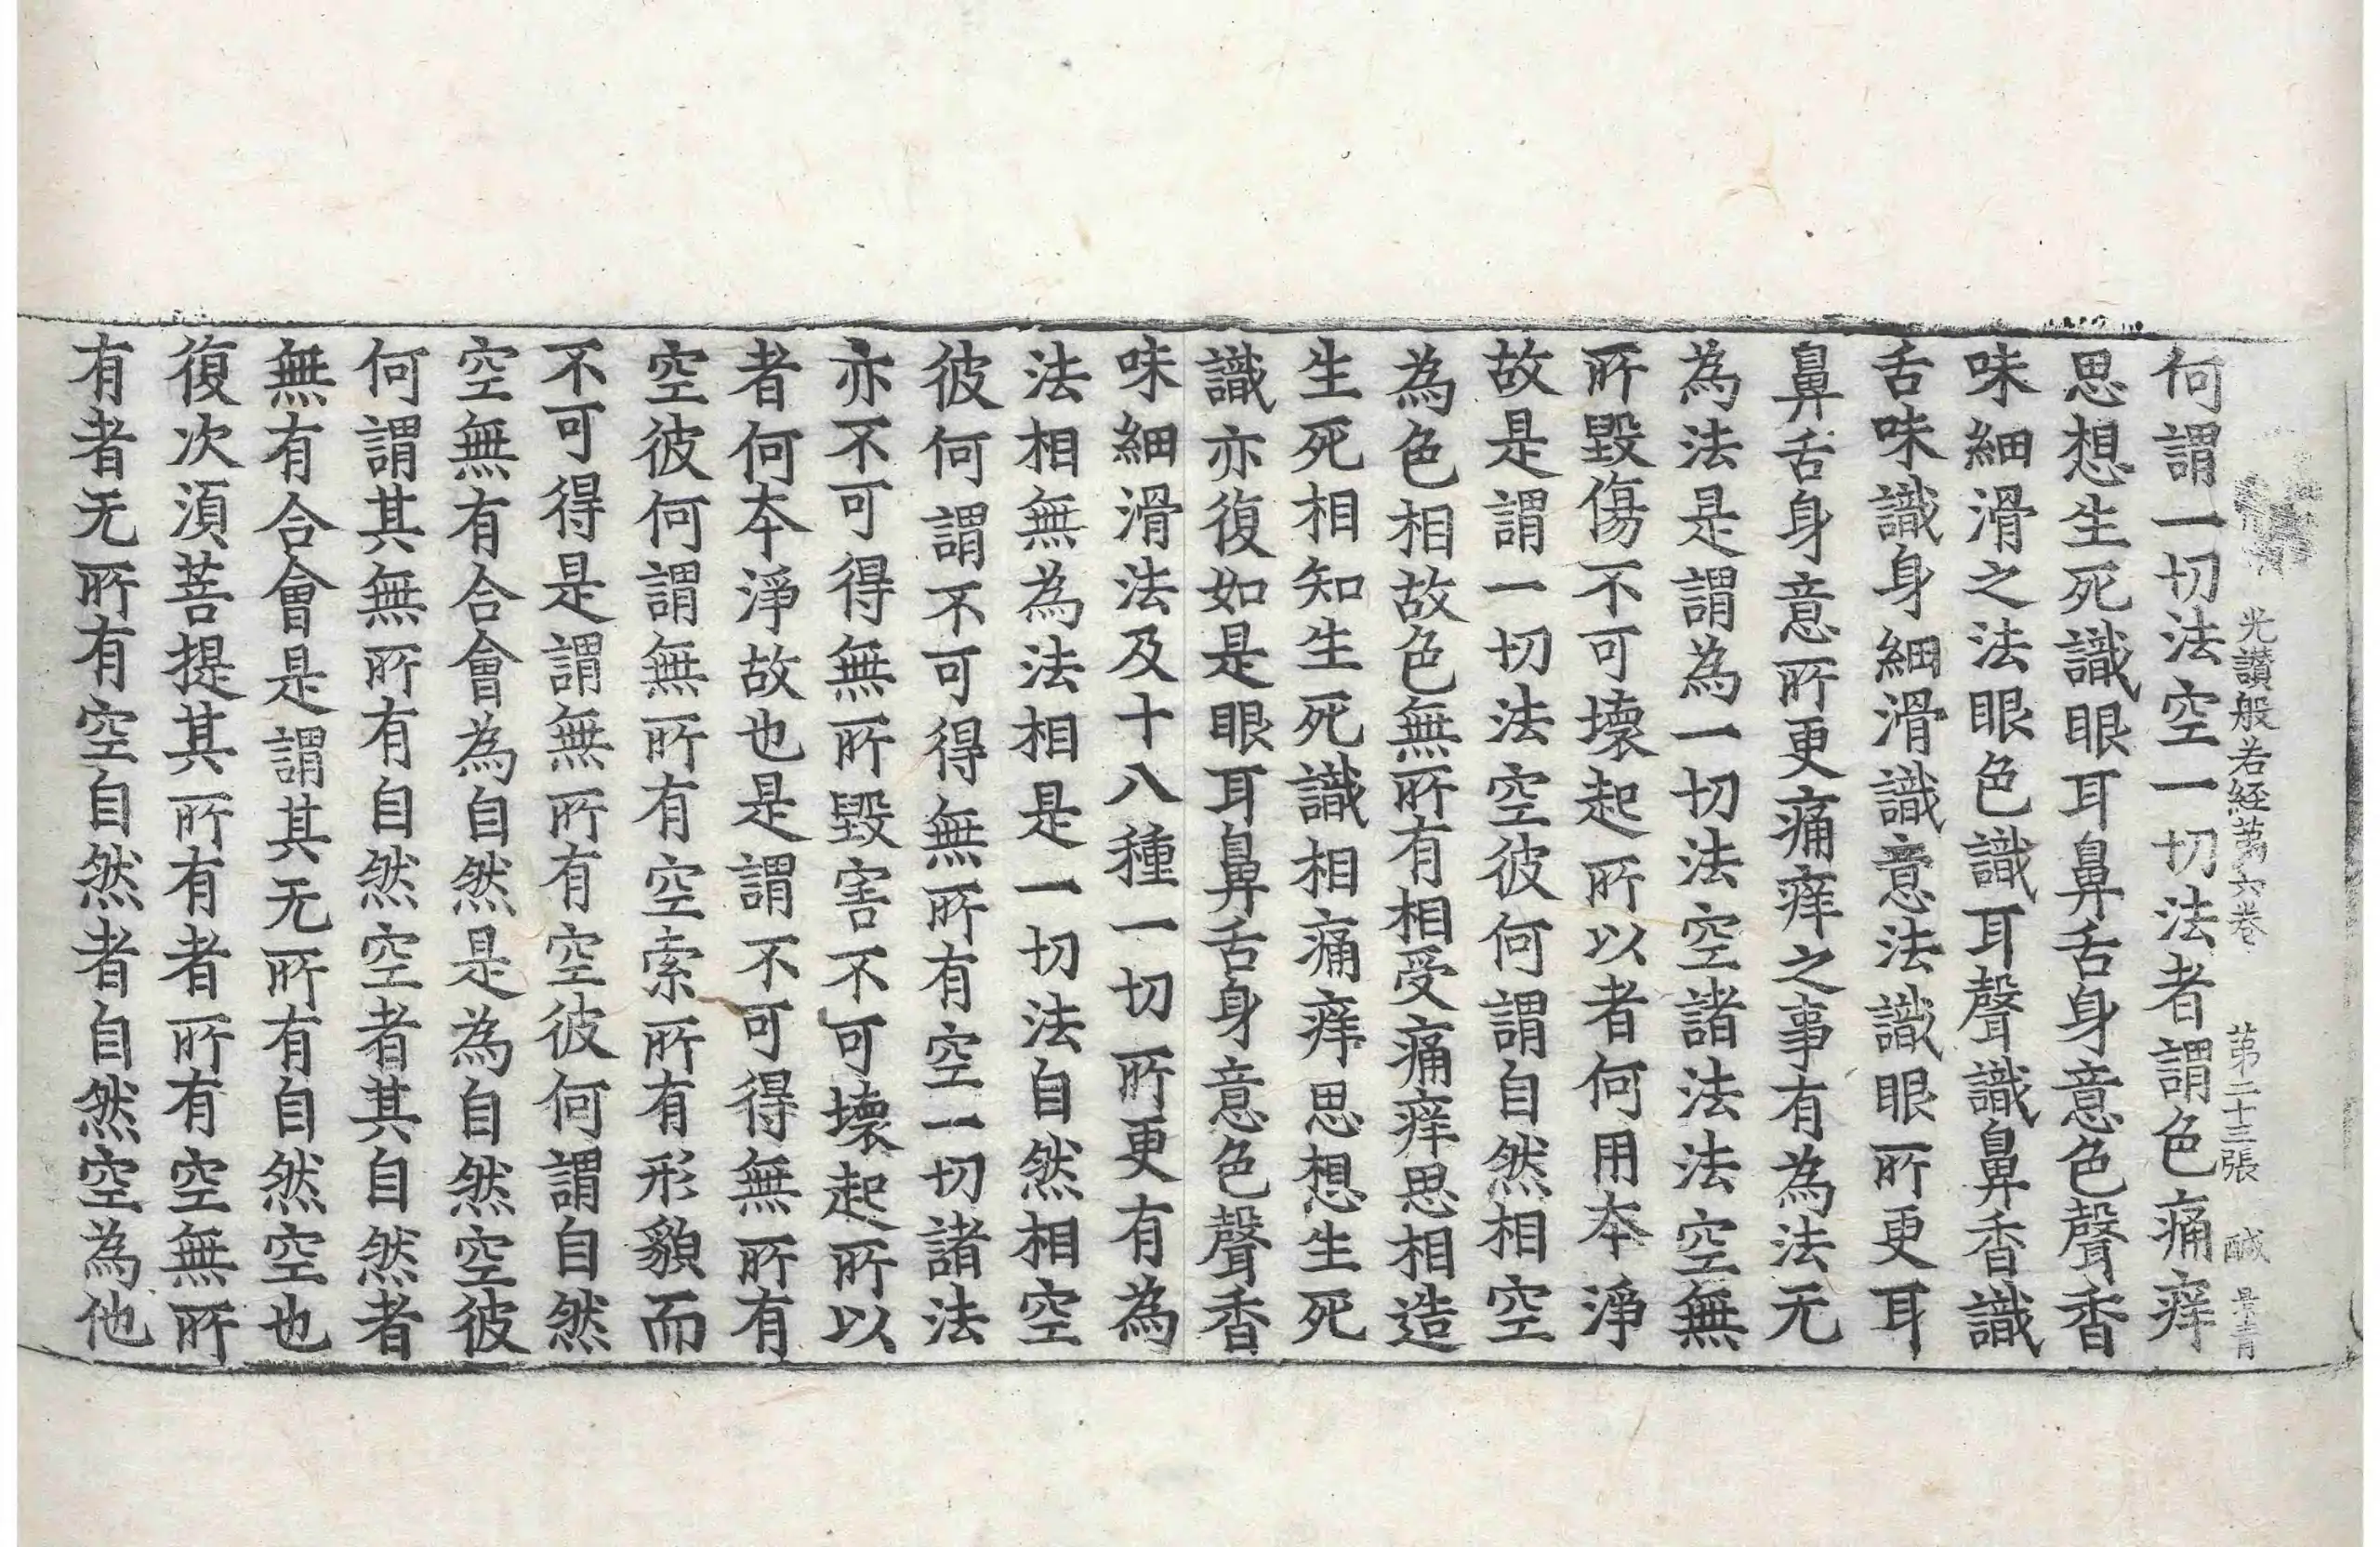 光讃般若経苐六卷 苐二十三張 鹹 景青
何謂一切法空一切法者謂色痛痒
思想生死識眼耳鼻舌身意色聲香
味細滑之法眼色識耳聲識鼻香識
舌味識身細滑識意法識眼所更耳
鼻舌身意所更痛痒之事有為法无
為法是謂為一切法空諸法法空無
所毀傷不可壞起所以者何用夲淨
故是謂一切法空彼何謂自然相空
為色相故色無所有相受痛痒思相造
生死相知生死識相痛痒思想生死
識亦復如是眼耳鼻舌身意色聲香
味細滑法及十八種一切所更有為
法相無為法相是一切法自然相空
彼何謂不可得無所有空一切諸法
亦不可得無所毀害不可壞起所以
者何夲淨故也是謂不可得無所有
空彼何謂無所有空索所有形貌而
不可得是謂無所有空彼何謂自然
空無有合會為自然是為自然空彼
何謂其無所有自然空者其自然者
無有合會是謂其无所有自然空也
復次湏菩提其所有者所有空無所
有者无所有空自然者自然空為他